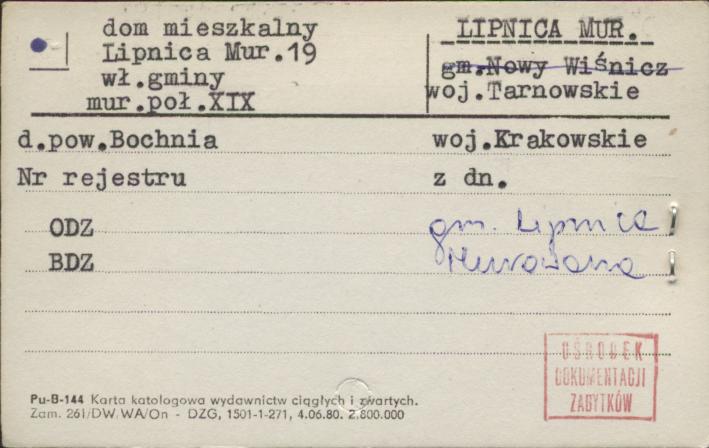 dom mieszkalny
Lipnica Mur.19
wł.gminy
mur.poł.XIX
LIPNICA MUR.
gm.Nowy Wiśnicz
woj.Tarnowskie
d.pow.Bochnia woj.Krakowskie
Nr rejestru z dn.
ODZ gm. Lipnica
BDZ Murowana
OŚRODEK
DOKUMENTACJI
ZABYTKÓW
Pu-B-144 Karta katologowa wydawnictw ciągłych i zwartych.
Zam. 261/DW.WA/On - DZG, 1501-1-271, 4.06.80. 2.800.000